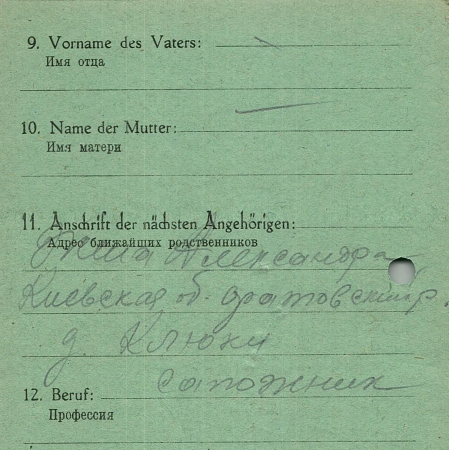 9. Vorname des Vaters:
Имя отца
10. Name der Mutter:
Имя матери
11. Anschrift der nächsten Angehörigen:
Адрес ближайших родственников
Александра
Киевская об.
д. Клюки
12. Beruf:
сапожник
Профессия